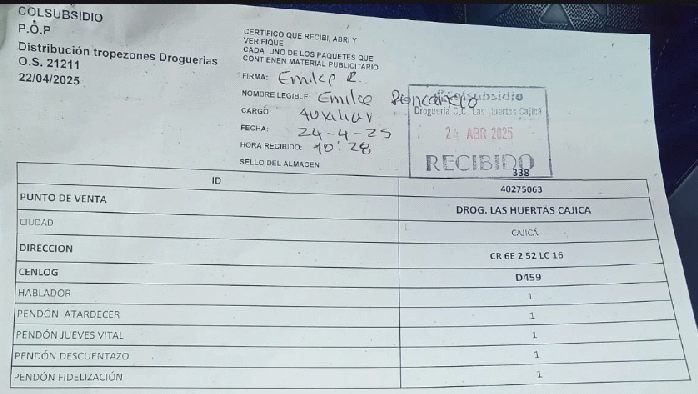 COLSUBSIDIO
P.O.P
Distribución tropezones Droguerias
O.S. 21211
22/04/2025
CERTIFICO QUE RECIBI, ABRI Y
VERIFIQUE
CADA UNO DE LOS PAQUETES QUE
CONTIENEN MATERIAL PUBLICITARIO
FIRMA: Emilce R.
NOMBRE LEGIBLE Emilce
CARGO Auxiliar
FECHA: 24-4-25
HORA RECIBIDO: 10:28
SELLO DEL ALMACEN
Colsubsidio
Droguería S.C. Las Huertas Cajicá
24 ABR 2025
RECIBIDO
338
ID 40275063
PUNTO DE VENTA DROG. LAS HUERTAS CAJICA
CIUDAD CAJICÁ
DIRECCION CR 6E 2 52 LC 16
CENLOG D459
HABLADOR 1
PENDÓN ATARDECER 1
PENDÓN JUEVES VITAL 1
PENDÓN DESCUENTAZO 1
PENDÓN FIDELIZACIÓN 1